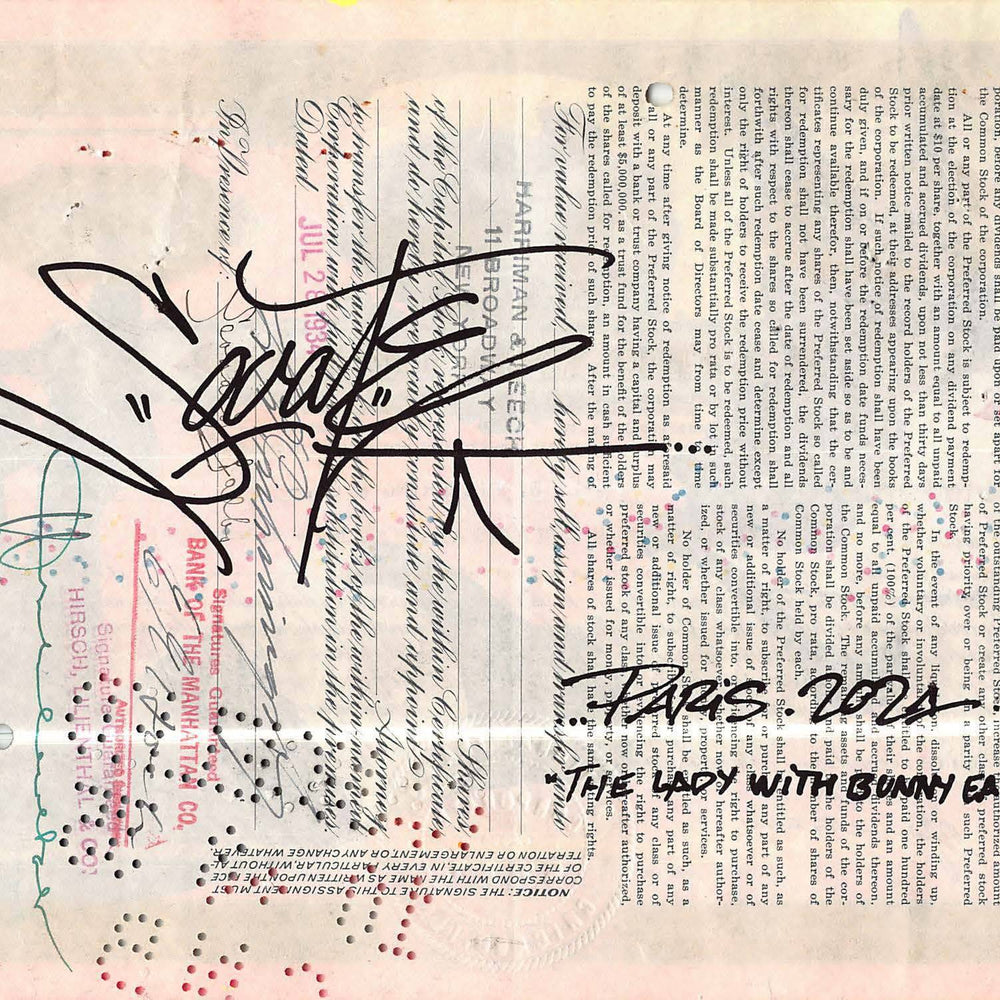 PARIS. 2024
"THE LADY WITH BUNNY EA
the Common Stock of the corporation.
All or any part of the Preferred Stock is subject to redemp-
tion at the election of the corporation on any dividend payment
date at $10 per share, together with an amount equal to all unpaid
accumulated and accrued dividends, upon not less than thirty days
prior written notice mailed to the record holders of the Preferred
Stock to be redeemed, at their addresses appearing upon the books
of the corporation. If such notice of redemption shall have been
duly given, and if on or before the redemption date funds neces-
sary for the redemption shall have been set aside so as to be and
continue available therefor, then, notwithstanding that the cer-
tificates representing any shares of the Preferred Stock so called
for redemption shall not have been surrendered, the dividends
thereon shall cease to accrue after the date of redemption and all
rights with respect to the shares so called for redemption shall
forthwith after such redemption date cease and determine except
only the right of holders to receive the redemption price without
interest. Unless all of the Preferred Stock is to be redeemed, such
redemption shall be made substantially pro rata or by lot in such
manner as the Board of Directors may from time to time
determine.
At any time after giving notice of redemption as aforesaid
all or any part of the Preferred Stock, the corporation may
deposit with a bank or trust company having a capital and surplus
of at least $5,000,000, as a trust fund for the benefit of the holders
of the shares called for redemption, an amount in cash sufficient
to pay the redemption price of such shares. After the making of
of Preferred Stock or create any other class of preferred stock
having priority over or being on a parity with such Preferred
Stock.
In the event of any liquidation, dissolution or winding up,
whether voluntary or involuntary, of the corporation, the holders
of the Preferred Stock shall be entitled to be paid one hundred
per cent. (100%) of the par value of their shares and an amount
equal to all unpaid accumulated and accrued dividends thereon,
and no more, before any amount shall be paid to the holders of
the Common Stock. The remaining assets and funds of the cor-
poration shall be divided among and paid to the holders of the
Common Stock, pro rata, according to the number of shares of
Common Stock held by each.
No holder of the Preferred Stock shall be entitled as such, as
a matter of right, to subscribe for or purchase any part of any
new or additional issue of stock of any class whatsoever or of
securities convertible into, or evidencing the right to purchase,
stock of any class whatsoever, whether now or hereafter author-
ized, or whether issued for money, property or services.
No holder of Common Stock shall be entitled as such, as a
matter of right, to subscribe for or purchase any part of any
new or additional issue of preferred stock of any class or of
securities convertible into or evidencing the right to purchase
preferred stock of any class whether now or hereafter authorized,
or whether issued for money, property, or services.
All shares of stock shall have the same voting rights.
For value received, hereby sell, assign and transfer unto
HARRIMAN &
11 BROADWAY
NEW YORK
Shares
of the Capital Stock represented by the within Certificate
and do hereby irrevocably constitute and appoint
Attorney
to transfer the said stock on the books of the within named
Corporation with full power of substitution in the premises.
Dated
JUL 2 1934
In Presence of
Signatures Guaranteed
BANK OF THE MANHATTAN CO.
AUTHORIZED SIGNATURE
Signature Guaranteed
HIRSCH, LILIENTHAL & CO.
NOTICE: THE SIGNATURE TO THIS ASSIGNMENT MUST
CORRESPOND WITH THE NAME AS WRITTEN UPON THE FACE
OF THE CERTIFICATE IN EVERY PARTICULAR, WITHOUT AL-
TERATION OR ENLARGEMENT OR ANY CHANGE WHATEVER.